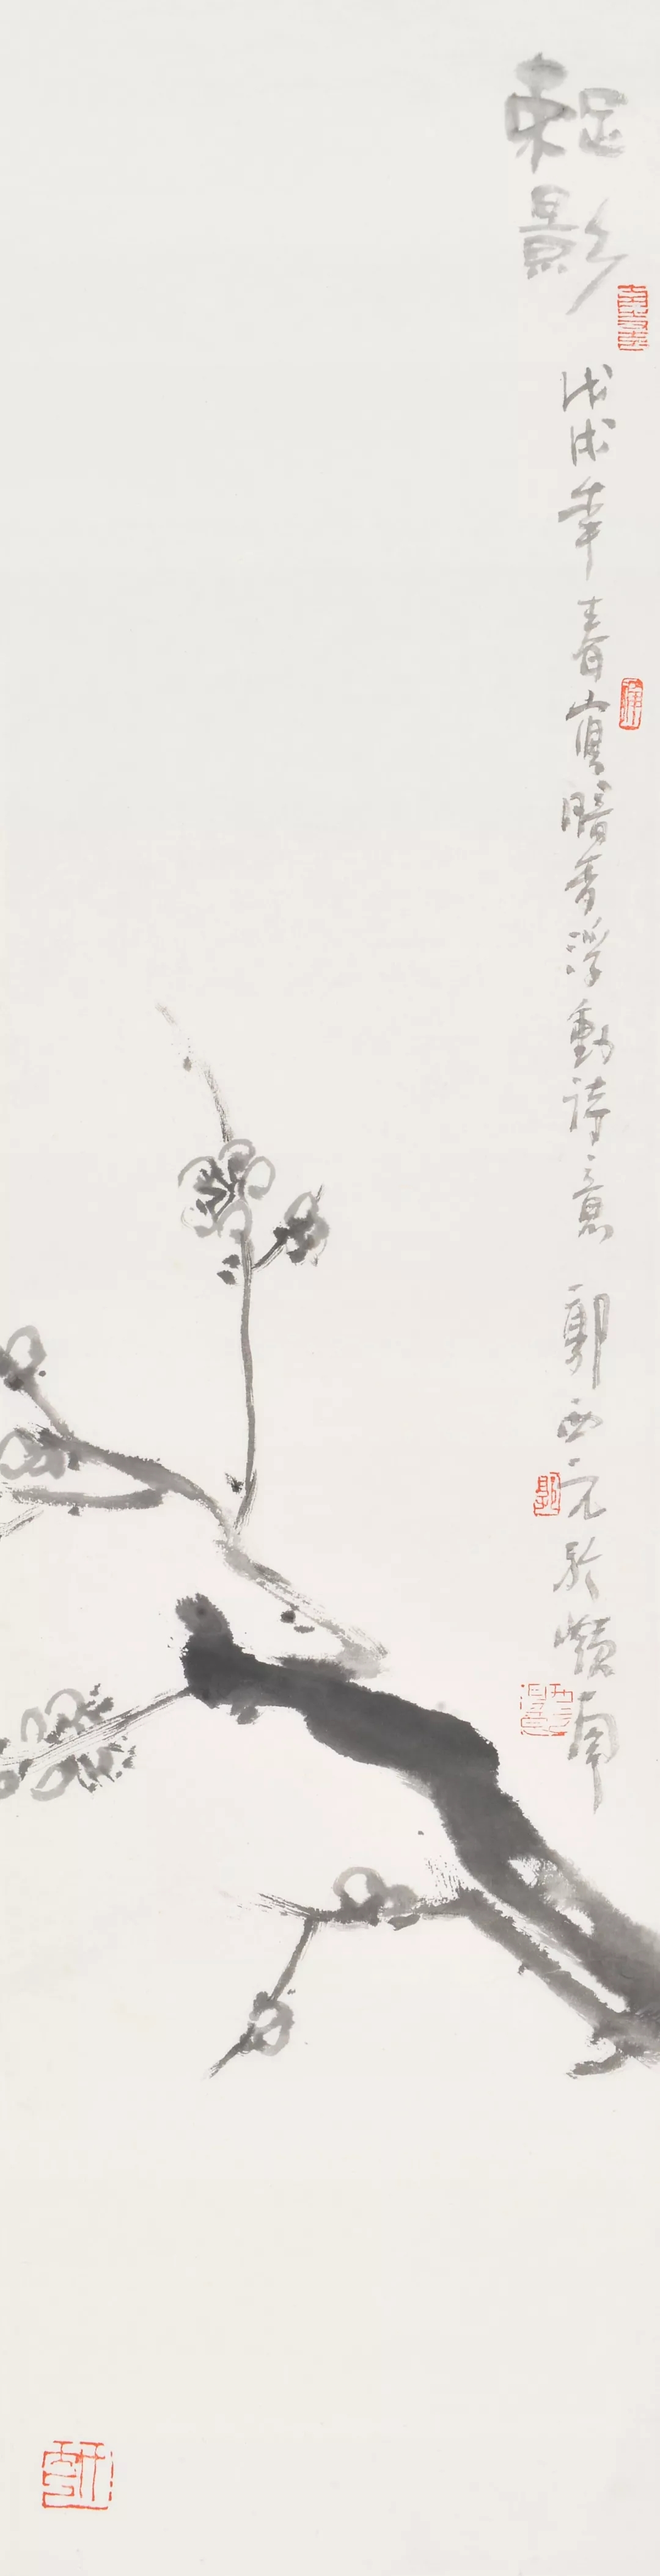 踈影
戊戌年春寫暗香浮動詩意 郭西元於嶺南